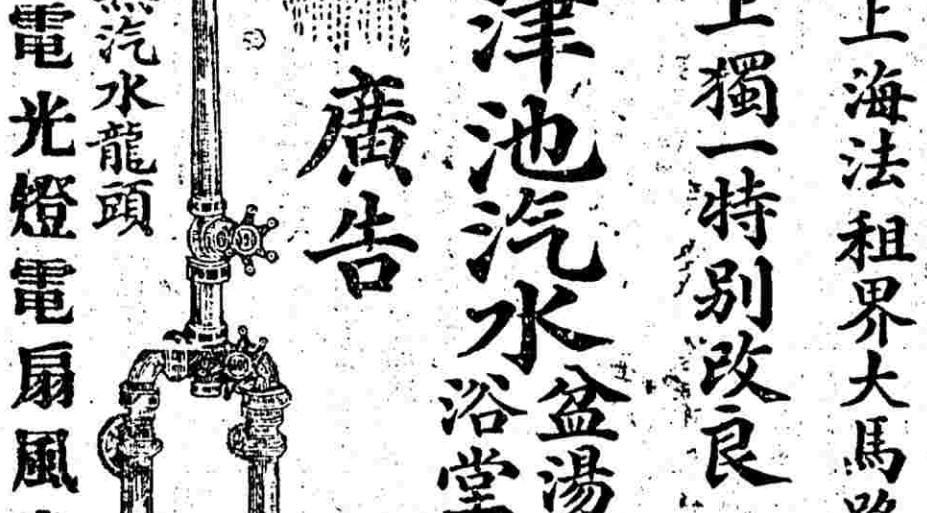 上海法租界大馬路
上獨一特別改良
津池汽水
盆湯
浴堂
廣告
汽水龍頭
電光燈電扇風